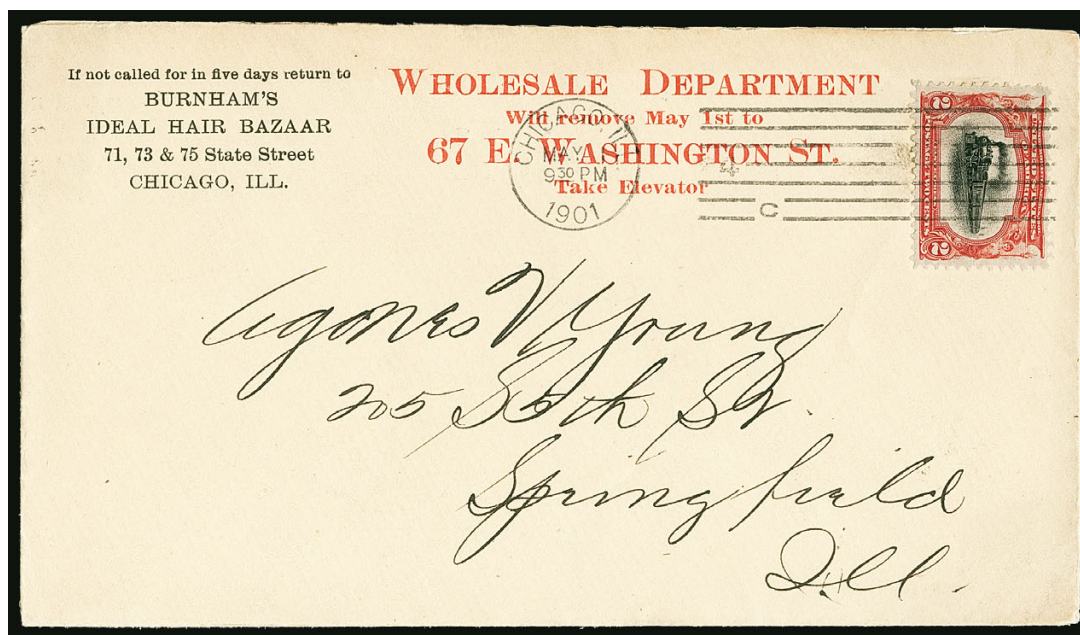 If not called for in five days return to
BURNHAM'S
IDEAL HAIR BAZAAR
71, 73 & 75 State Street
CHICAGO, ILL.
WHOLESALE DEPARTMENT
Will remove May 1st to
67 E. WASHINGTON ST.
Take Elevator
CHICAGO, ILL.
MAY
9 30 PM
1901
4
C
2
2
Agnes V Young
205 S 5th St.
Springfield
Ill.